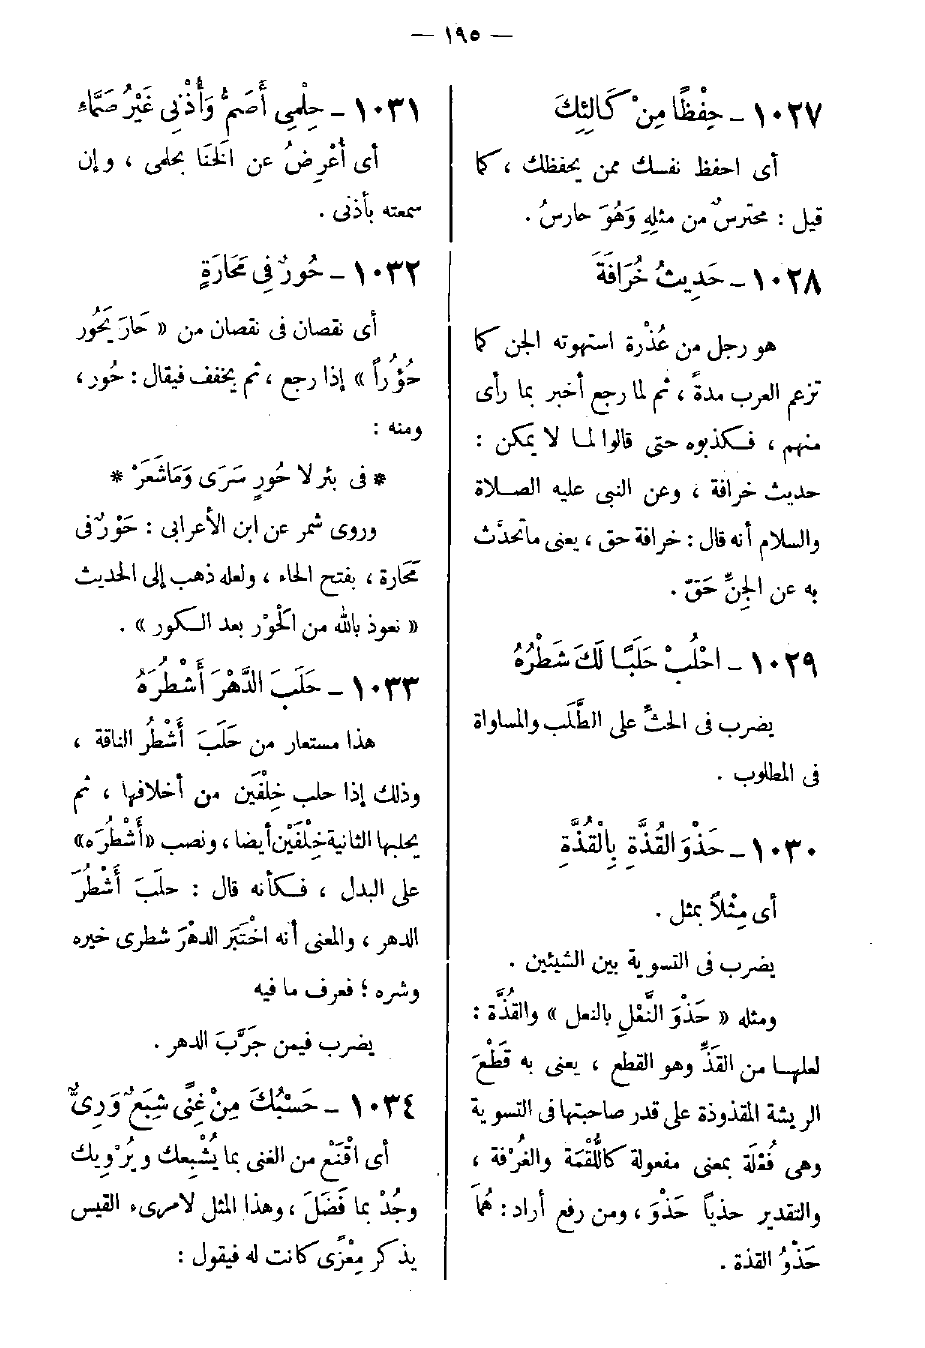 — ١٩٥ —
١٠٢٧ – حِفْظًا مِنْ كَالِئِكَ
أى احفظ نفسك ممن يحفظك ، كما
قيل : محترسٌ من مثلِهِ وَهُوَ حارسُ .
١٠٢٨ – حَدِيثُ خُرَافَةَ
هو رجل من عُذْرة استهوته الجن كما
تزعم العرب مدةً ، ثم لما رجع أخبر بما رأى
منهم ، فكذبوه حتى قالوا لما لا يمكن :
حديث خرافة ، وعن النبى عليه الصلاة
والسلام أنه قال : خرافة حق ، يعنى ما تحدَّث
به عن الجِنِّ حَقّ .
١٠٢٩ – احْلُبْ حَلَبًا لَكَ شَطْرُهُ
يضرب فى الحثِّ على الطَّلَب والمساواة
فى المطلوب .
١٠٣٠ – حَذْوَ القُذَّةِ بِالْقُذَّةِ
أى مِثْلاً بمثل .
يضرب فى التسوية بين الشيئين .
ومثله « حَذْوَ النَّعْلِ بالنعل » والقُذَّة :
لعلها من القَذِّ وهو القطع ، يعنى به قَطْعَ
الريشة المقذوذة على قدر صاحبتها فى التسوية
وهى فُعْلَة بمعنى مفعولة كاللُّقْمَة والغُرْفة ،
والتقدير حذياً حَذْوَ ، ومن رفع أراد : هُمَا
حَذْوُ القذة .
١٠٣١ – حِلْمِى أَصَمُّ وَأُذْنِى غَيْرُ صَمَّاءِ
أى أُعْرِضُ عن الَخْنَا بحلمى ، وإن
سمعته بأذنى .
١٠٣٢ – حُورٌ فِى مَحَارَةٍ
أى نقصان فى نقصان من « حَارَ يَحُور
حُؤُراً » إذا رجع ، ثم يخفف فيقال : حُور ،
ومنه :
* فى بئر لا حُورٍ سَرَى وَمَا شَعَرْ *
وروى شمر عن ابن الأعرابى : حَوْرٌ فى
مَحَارة ، بفتح الحاء ، ولعله ذهب إلى الحديث
« نعوذ بالله من الْحَوْر بعد الكور » .
١٠٣٣ – حَلَبَ الدَّهْرَ أَشْطُرَهُ
هذا مستعار من حَلَبَ أَشْطُرَ الناقة ،
وذلك إذا حلب خِلْفَين من أخلافها ، ثم
يحلبها الثانية خِلْفَيْن أيضا ، ونصب «أَشْطُرَه»
على البدل ، فكأنه قال : حلَبَ أَشْطُرَ
الدهر ، والمعنى أنه اخْتَبَر الدهْرَ شطرى خيره
وشره ؛ فعرف ما فيه
يضرب فيمن جَرَّبَ الدهر .
١٠٣٤ – حَسْبُكَ مِنْ غِنًى شِبَعٌ وَرِىٌّ
أى اقْنَعْ من الغنى بما يُشْبِعك ويُرْوِيك
وجُدْ بما فَضَلَ ، وهذا المثل لامرىء القيس
يذكر مِعْزًى كانت له فيقول :